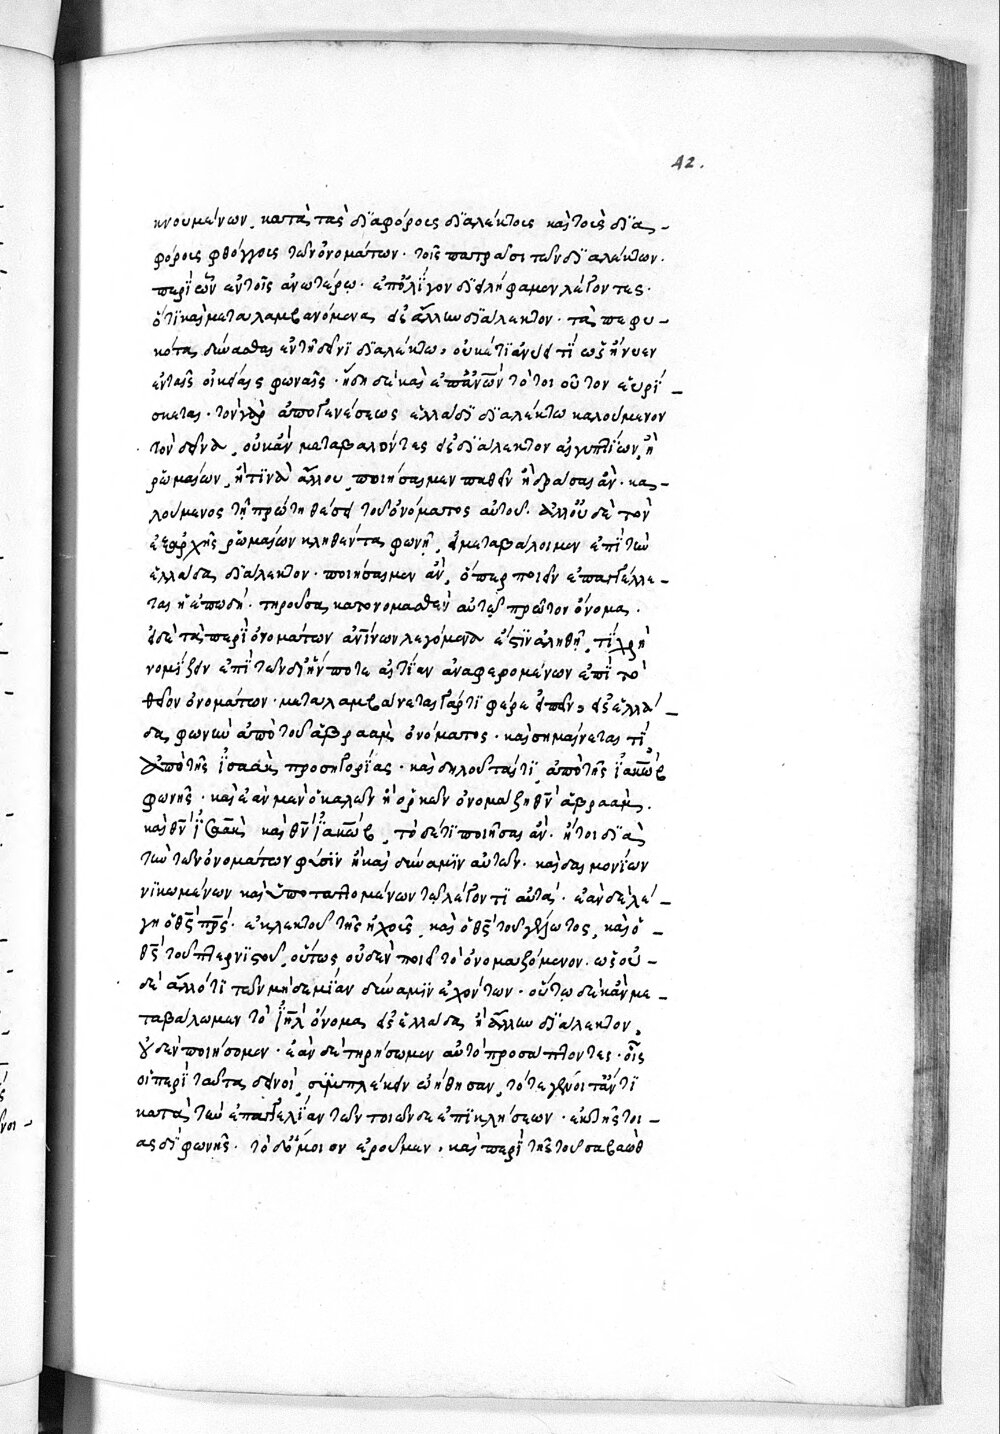 42.
κνουμένων, κατὰ τὰς διαφόροις διαλέκτοις καὶ τοῖς δια-
φόροις φθόγγοις τῶν ὀνομάτων· τοῖς πατράσι τῶν διαλέκτων.
περὶ ὧν ἐν τοῖς ἀνωτέρω· ἐπολίγον διειλήφαμεν λέγοντες·
ὅτι καὶ μεταλαμβανόμενα εἰς ἄλλην διάλεκτον· τὰ πεφυ-
κότα δύνασθαι ἐν τῇ δεῖνι διαλέκτω, οὐκέτι ἀνύει τί ὡς ἤνυεν
ἐν ταῖς οἰκείαις φωναῖς· ἤδη δὲ καὶ ἐπ' ἀνῶν τὸ τοιοῦτον εὑρί-
σκεται· τὸν γὰρ ἀπὸ γενέσεως ἑλλάδι διαλέκτω καλούμενον
τὸν δεῖνα, οὐκ ἂν μεταβαλόντες εἰς διάλεκτον αἰγυπτίων, ἢ
ῥωμαίων, ἤ τινα ἄλλου, ποιήσαιμεν παθεῖν ἢ δρᾶσαι ἂν· κα-
λούμενος τῇ πρώτη θέσει τοῦ ὀνόματος αὐτοῦ. ἀλλ' οὐδὲ τὸν
ἐξαρχῆς ῥωμαίων κληθέντα φωνῇ, εἰ μεταβάλοιμεν ἐπὶ τὴν
ἑλλάδα διάλεκτον· ποιήσαιμεν ἂν, ὅπερ ποιεῖν ἐπαγγέλλε-
ται ἡ ἐπωδή· τηροῦσα κατονομασθὲν αὐτῷ πρῶτον ὄνομα.
εἰ δὲ τὰ περὶ ὀνομάτων ἀνίνων λεγόμενα ἐστὶν ἀληθῆ, τί χρὴ
νομίζειν ἐπὶ τῶν δι' ἥνποτε αἰτίαν ἀναφερομένων ἐπὶ τὸ
θεῖον ὀνομάτων· μεταλαμβάνεται γάρ τι φέρε εἰπεῖν, εἰς ἑλλά-
δα φωνὴν ἀπὸ τοῦ ἀβραὰμ ὀνόματος· καὶ σημαίνεται τί
ἀπὸ τῆς ἰσαὰκ προσηγορίας· καὶ δηλοῦται τί, ἀπὸ τῆς ἰακὼβ
φωνῆς· καὶ ἐὰν μὲν ὁ καλῶν ἢ ὁρκῶν ὀνομάζη θν̅ ἀβραὰμ.
καὶ θν̅ ἰσαὰκ καὶ θν̅ ἰακὼβ, τὸ δέ τι ποιῆσαι ἂν· ἤτοι διὰ
τὴν τῶν ὀνομάτων φύσιν ἢ καὶ δύναμιν αὐτῶν· καὶ δαιμονίων
νικωμένων καὶ ὑποταττομένων τῷ λέγοντι αὐτά· ἐὰν δὲ λέ-
γη ὁ θς̅ πρς̅· ἐκλεκτοῦ τῆς ἠχοῦς, καὶ ὁ θς̅ τοῦ γέλωτος, καὶ ὁ
θς̅ τοῦ πτερνιστοῦ, οὕτως οὐδὲν ποιεῖ τὸ ὀνομαζόμενον. ὡς οὐ-
δὲ ἄλλό τι τῶν μηδεμίαν δύναμιν ἐχόντων· οὕτω δὲ κἂν με-
ταβάλωμεν τὸ ἰηλ̅ ὄνομα εἰς ἑλλάδα ἢ ἄλλην διάλεκτον,
οὐδὲν ποιήσομεν· ἐὰν δὲ τηρήσωμεν αὐτὸ προσάπτοντες· οἷς
οἱ περὶ ταῦτα δεινοὶ, συμπλέκειν ᾠήθησαν, τότε γένοιτ' ἄν τι
κατὰ τὴν ἐπαγγελίαν τῶν τοιῶνδε ἐπικλήσεων· ἐκ τῆς τοι-
ασδὶ φωνῆς· τὸ δ' ὅμοιον ἐροῦμεν, καὶ περὶ τῆς τοῦ σαβαὼθ